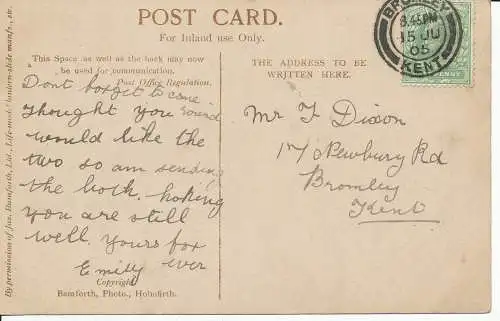 POST CARD.
For Inland use Only.
This Space as well as the back may now
be used for communication.
Post Office Regulation.
THE ADDRESS TO BE
WRITTEN HERE.
BROMLEY
8.45PM
15 JU
05
KENT
Dont forget to come
round
Thought you
would like the
two so am sending
the both. hoping
you are still
well. yours for
Emily ever
Mr F Dixon
17 Newbury Rd
Bromley
Kent
Copyright
Bamforth, Photo., Holmfirth.
By permission of Jas. Bamforth, Ltd., Life-model lantern-slide manfs., etc.